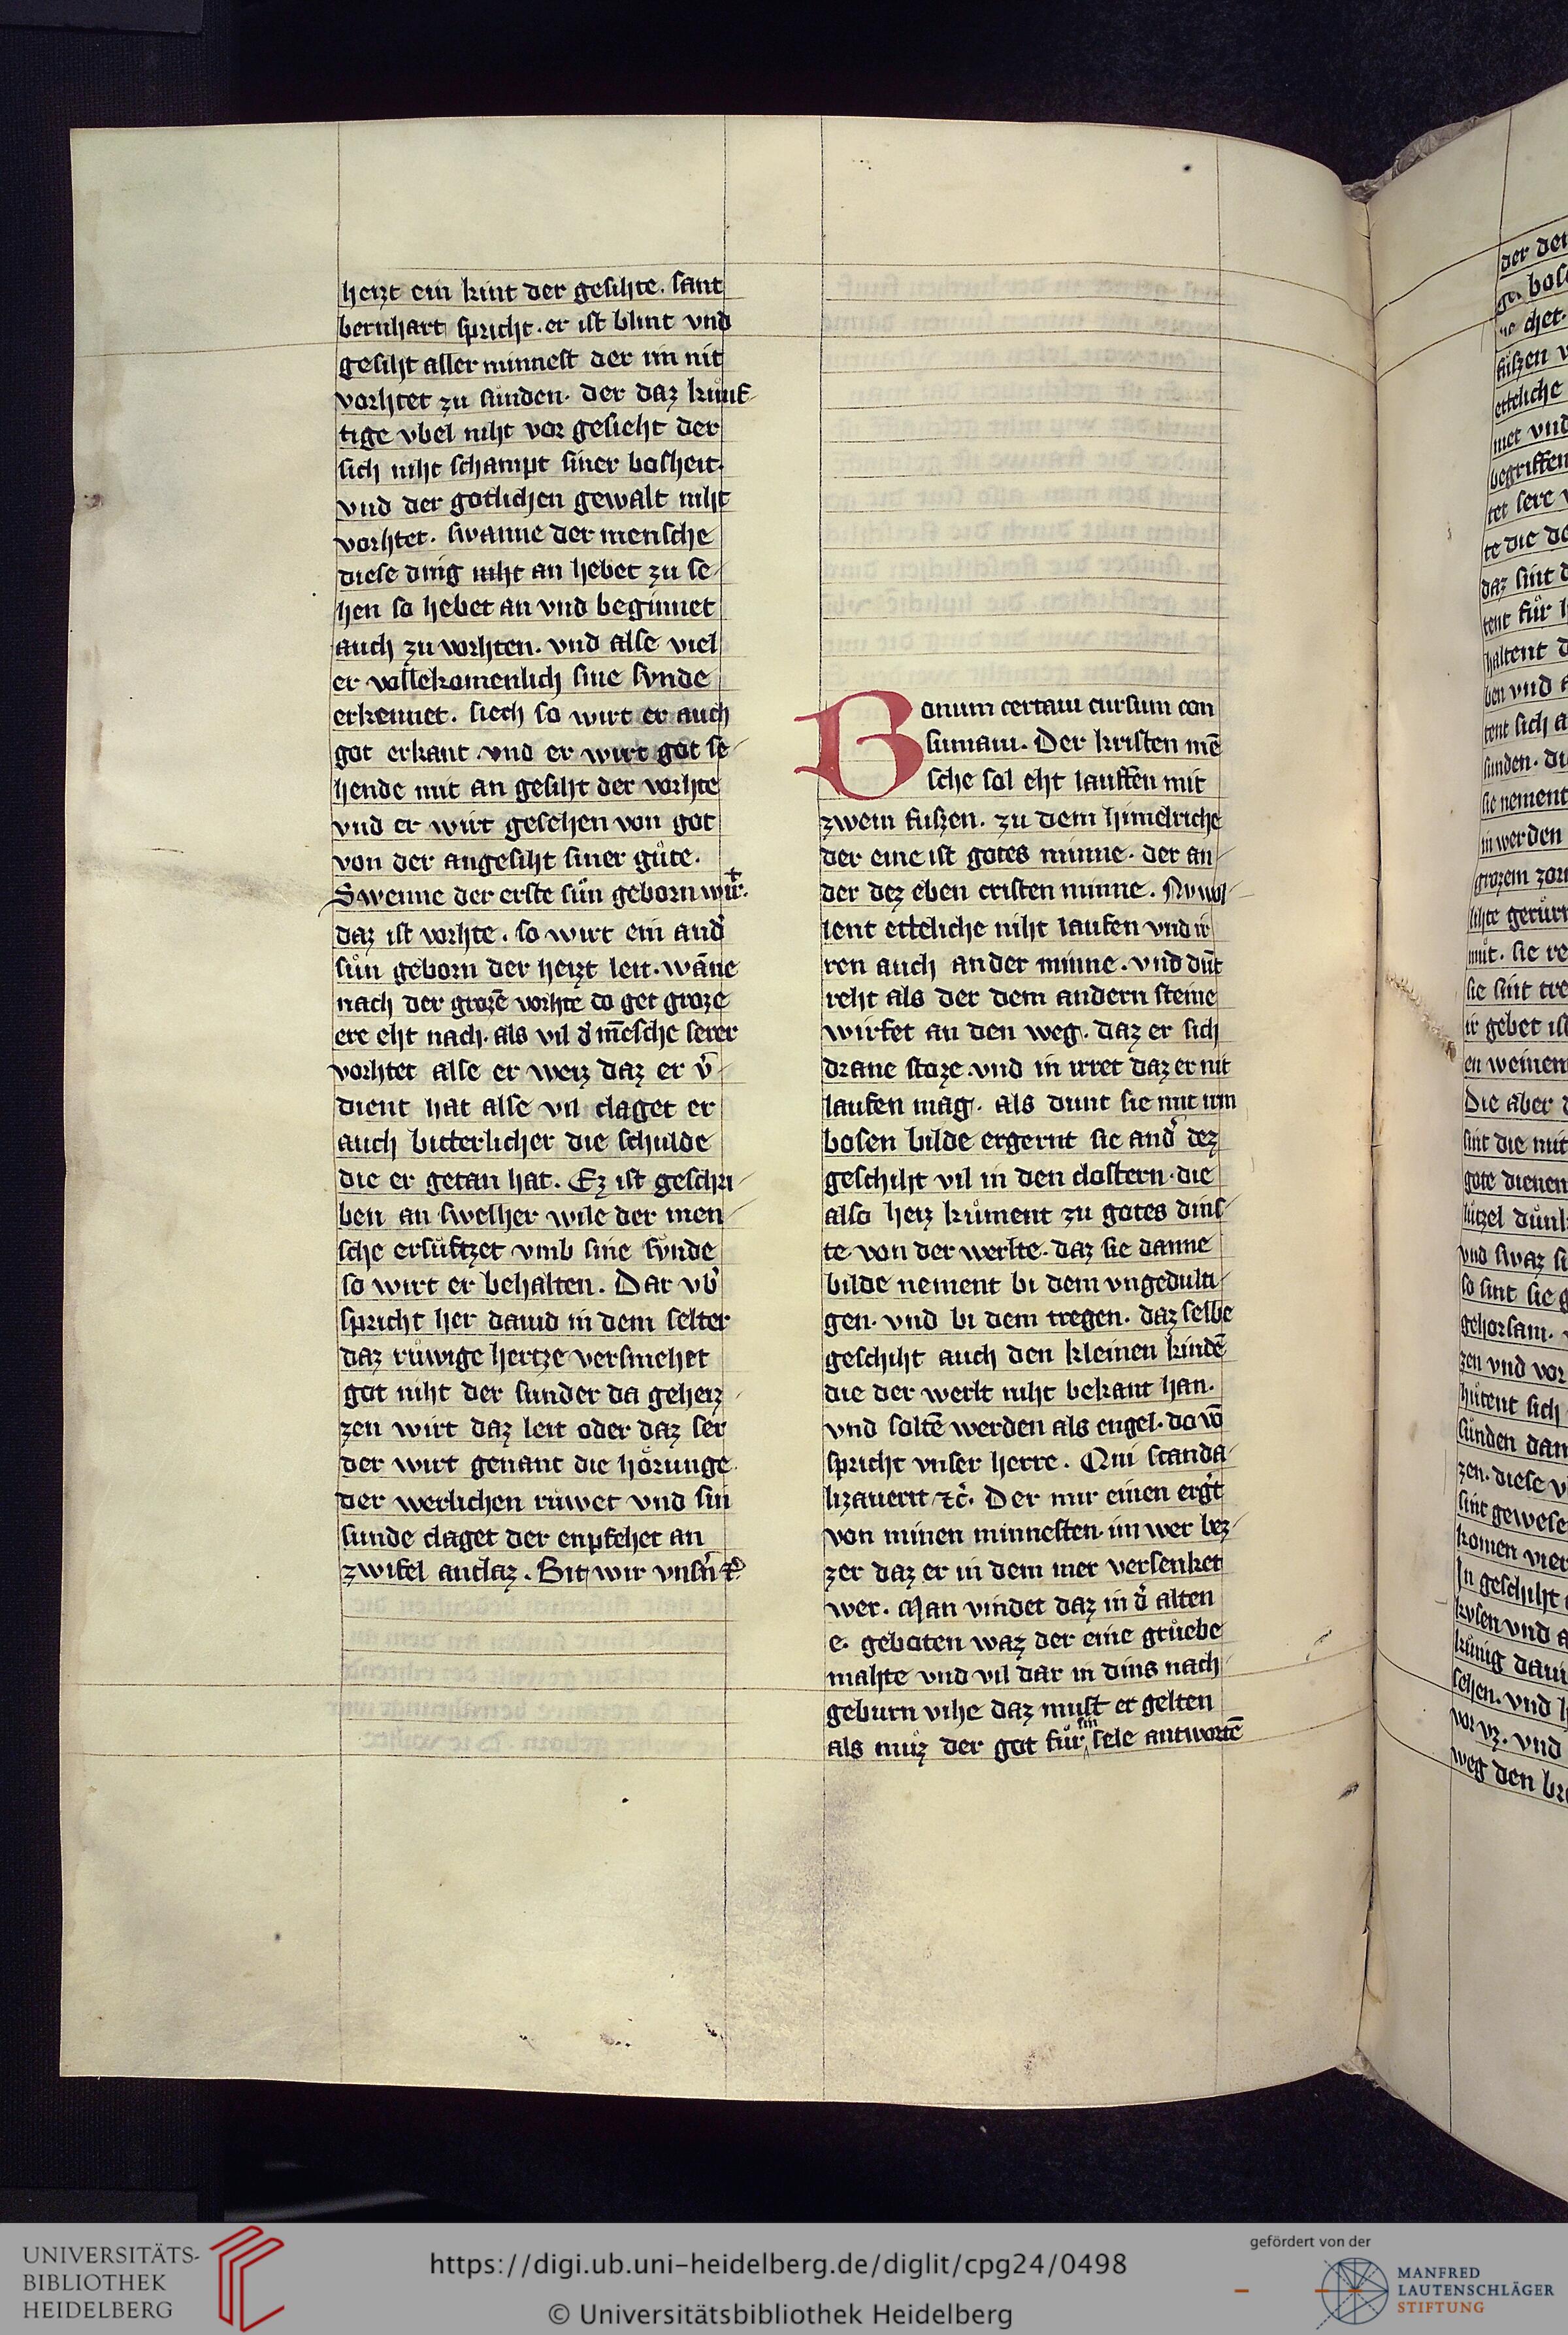 heizt ein kint der gesihte. sant
bernhart spricht. er ist blint vnd
gesiht aller minnest der im nit
vorhtet zu sunden. der daz kůnf
tige vbel niht vor gesieht der
sich niht schampt siner bosheit.
vnd der gotlichen gewalt niht
vorhtet. swanne der mensche
diese ding niht an hebet zu se
hen so hebet an vnd beginnet
auch zu vorhten. vnd alse viel
er vollekomenlich sine synde
erkennet. siech so wirt er auch
got erkant vnd er wirt got se
hende mit an gesiht der vorhte
vnd er wirt gesehen von got
von der angesiht siner gůte.
Swenne der erste sůn geborn wirt.
daz ist vorhte. so wirt ein and᾽
sůn geborn der heizt leit. wāne
nach der grozē vorhte do get groze
ere eht nach. als vil d᾽ mēsche serer
vorhtet alse er weiz daz er v᾽
dient hat alse vil claget er
auch bitterlicher die schulde
die er getan hat. Ez ist geschri
ben an swelher wile der men
sche ersůftzet vmb sine synde
so wirt er behalten. Dar vb᾽
spricht her dauid in dem selter
daz růwige hertze versmehet
got niht der sunder da geheiz
zen wirt daz leit oder daz ser
der wirt genant die hŏrunge
der werlichen růwet vnd sin
sunde claget der enpfehet an
zwifel antlaz. Bit wir vnsn᾽ ⁊c᾽
Bonum certam cursum con
sumam. Der kristen mē
sche sol eht lauffen mit
zwein fuszen. zu dem himelriche
der eine ist gotes minne. der an
der dez eben cristen minne. Nv wol
lent etteliche niht laufen vnd ir
ren auch ander minne. vnd dūt
reht als der dem andern steine
wirfet an den weg. daz er sich
drane stoze vnd in irret daz er nit
laufen mag. als dunt sie mit irm
bosen bilde ergernt sie and᾽ dez
geschiht vil in den clostern. die
also heiz kůment zu gotes dins
te von der werlte. daz sie danne
bilde nement bi dem vngedulti
gen. vnd bi dem tregen. daz selbe
geschiht auch den kleinen kindē
die der werlt niht bekant han.
vnd soltē werden als engel. do vō
spricht vnser herre. Qui scanda
lizauerit ⁊c᾽. Der mir einen erg᾽t
von minen minnesten. im wer bez
zer daz er in dem mer versenket
wer. Man vindet daz in d᾽ alten
e. geboten waz der eine grůebe
mahte vnd vil dar in dins nach
geburn vihe daz must er gelten
als můz der got fůr sin sele antwortē
UNIVERSITÄTS-
BIBLIOTHEK
HEIDELBERG
https://digi.ub.uni-heidelberg.de/diglit/cpg24/0498
© Universitätsbibliothek Heidelberg
gefördert von der
MANFRED
LAUTENSCHLÄGER
STIFTUNG